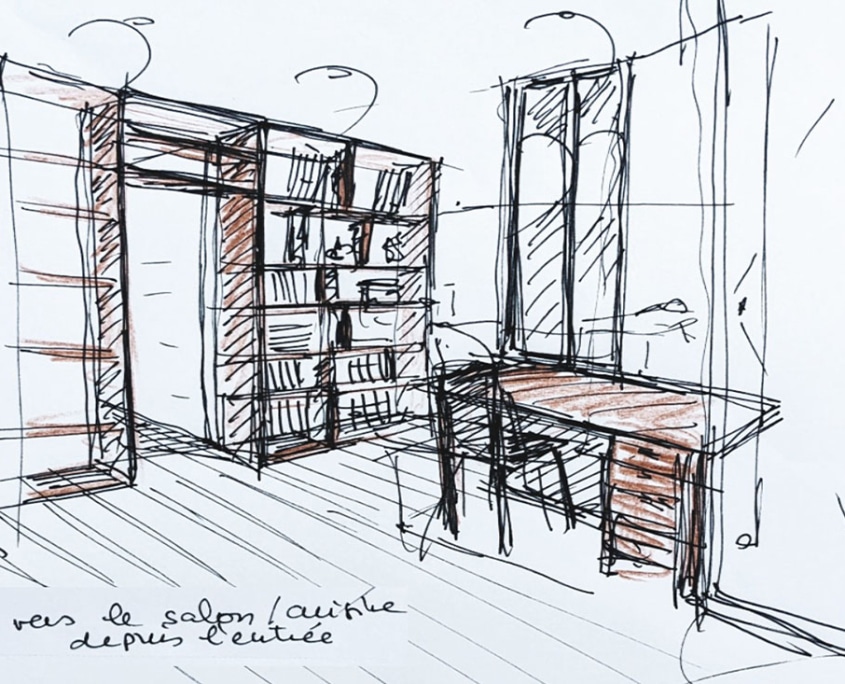 vers le salon / cuisine
depuis l'entrée